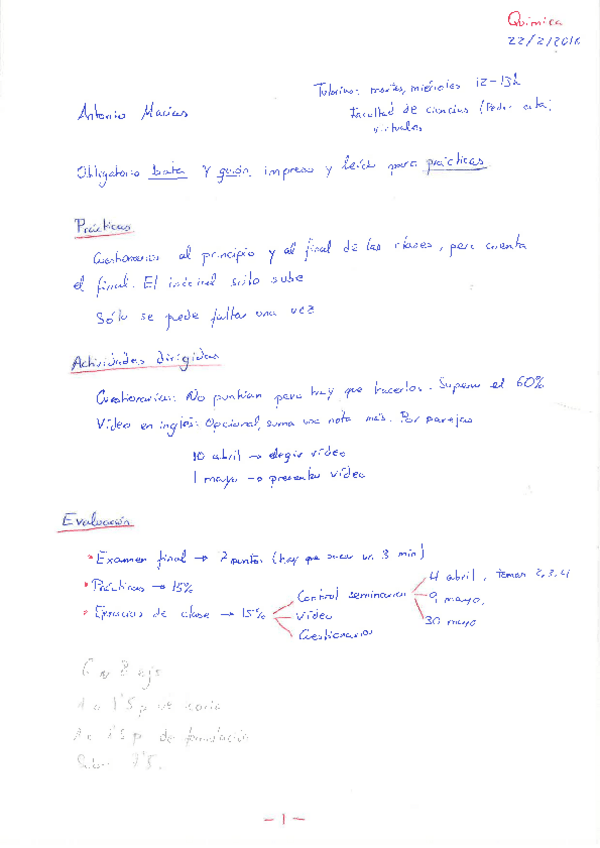 Química
22/2/2016
Tutorías: martes, miércoles 12-13h
Facultad de ciencias (Pedir cita)
virtuales
Antonio Macías
Obligatorio bata y guión, impreso y leído para prácticas
Prácticas
Cuestionarios al principio y al final de las clases, pero cuenta
el final. El inicial solo sube
Sólo se pede faltar una vez
Actividades dirigidas
Cuestionarios: No puntúan pero hay que hacerlos. Superar el 60%
Vídeo en inglés: Opcional, suma una nota más. Por parejas
10 abril → elegir vídeo
1 mayo → presentar vídeo
Evaluación
* Examen final → 7 puntos (hay que sacar un 3 min)
* Prácticas → 15%
* Ejercicios de clase → 15%
Control seminarios
Vídeo
Cuestionarios
4 abril, temas 2,3,4
9 mayo,
30 mayo
6 eje
1'5 p de
1'5 p de formulación
- 1 -